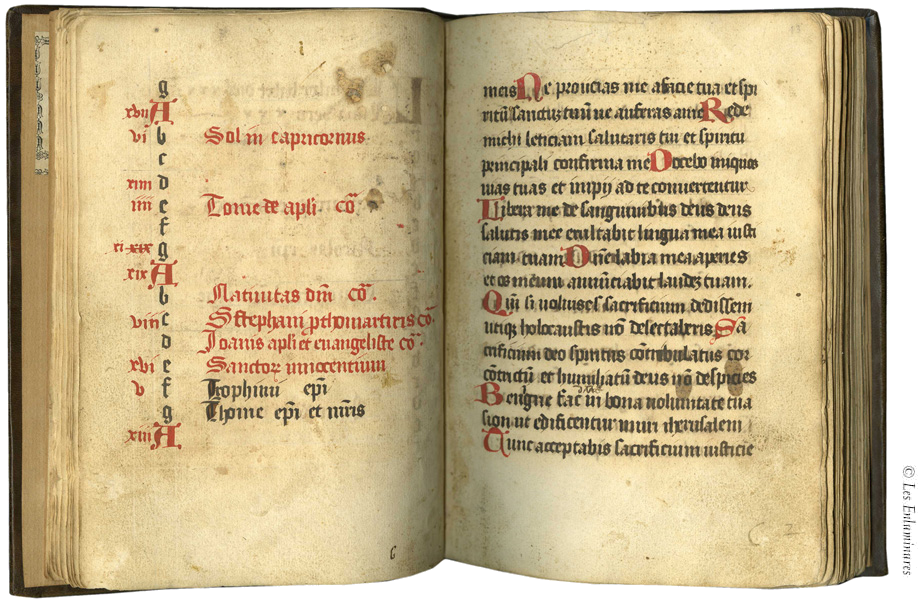 g
xvii A
vi b Sol in capricornus
c
xiiii d
iiii e Tome de apli. co.
f
xi xix g
xix A
b Nativitas dm̄ co.
viii c S stephani p̄thomartiris co.
d Joanis apli et evangeliste co.
xvi e Sanctoꝝ innocentium
v f Trophimi epī
g Thome epī et mr̄is
xiii A
6
meis Ne proicias me afacie tua et spi
ritū sanctū tuū ne auferas ame Rede
michi leticiam salutaris tui et spiritu
principali confirma me Docebo iniquos
vias tuas et impij ad te convertentur
Libera me de sanguinibus deus deus
salutis mee exultabit lingua mea iusti
ciam tuam Dn̄e labia mea aperies
et os meum anunciabit laudeꝫ tuam.
Qm̄ si voluisses sacrificium dedissem
utiqꝫ holocaustis nō delectaberis Sa
crificium deo spiritus cōtribulatus cor
cōtritū et humiliatū deus nō despicies
Benigne fac in bona voluntate tua
sion ut edificentur muri iherusalem
Tunc acceptabis sacrificium iusticie
© Les Enluminures